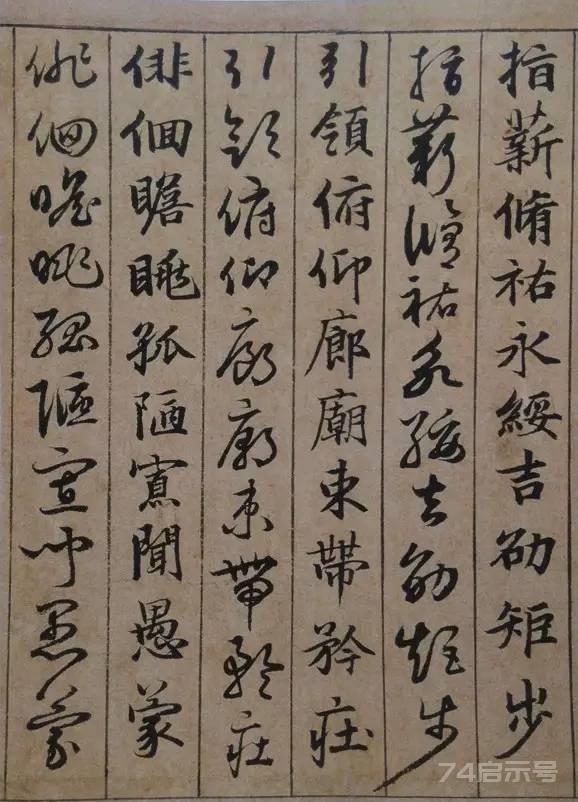 指薪脩祐永綏吉劭矩步
指薪脩祐永綏吉劭矩步
引領俯仰廊廟束帶矜莊
引領俯仰廊廟束帶矜莊
俳佪瞻眺孤陋寡聞愚蒙
俳佪瞻眺孤陋寡聞愚蒙
74启示号